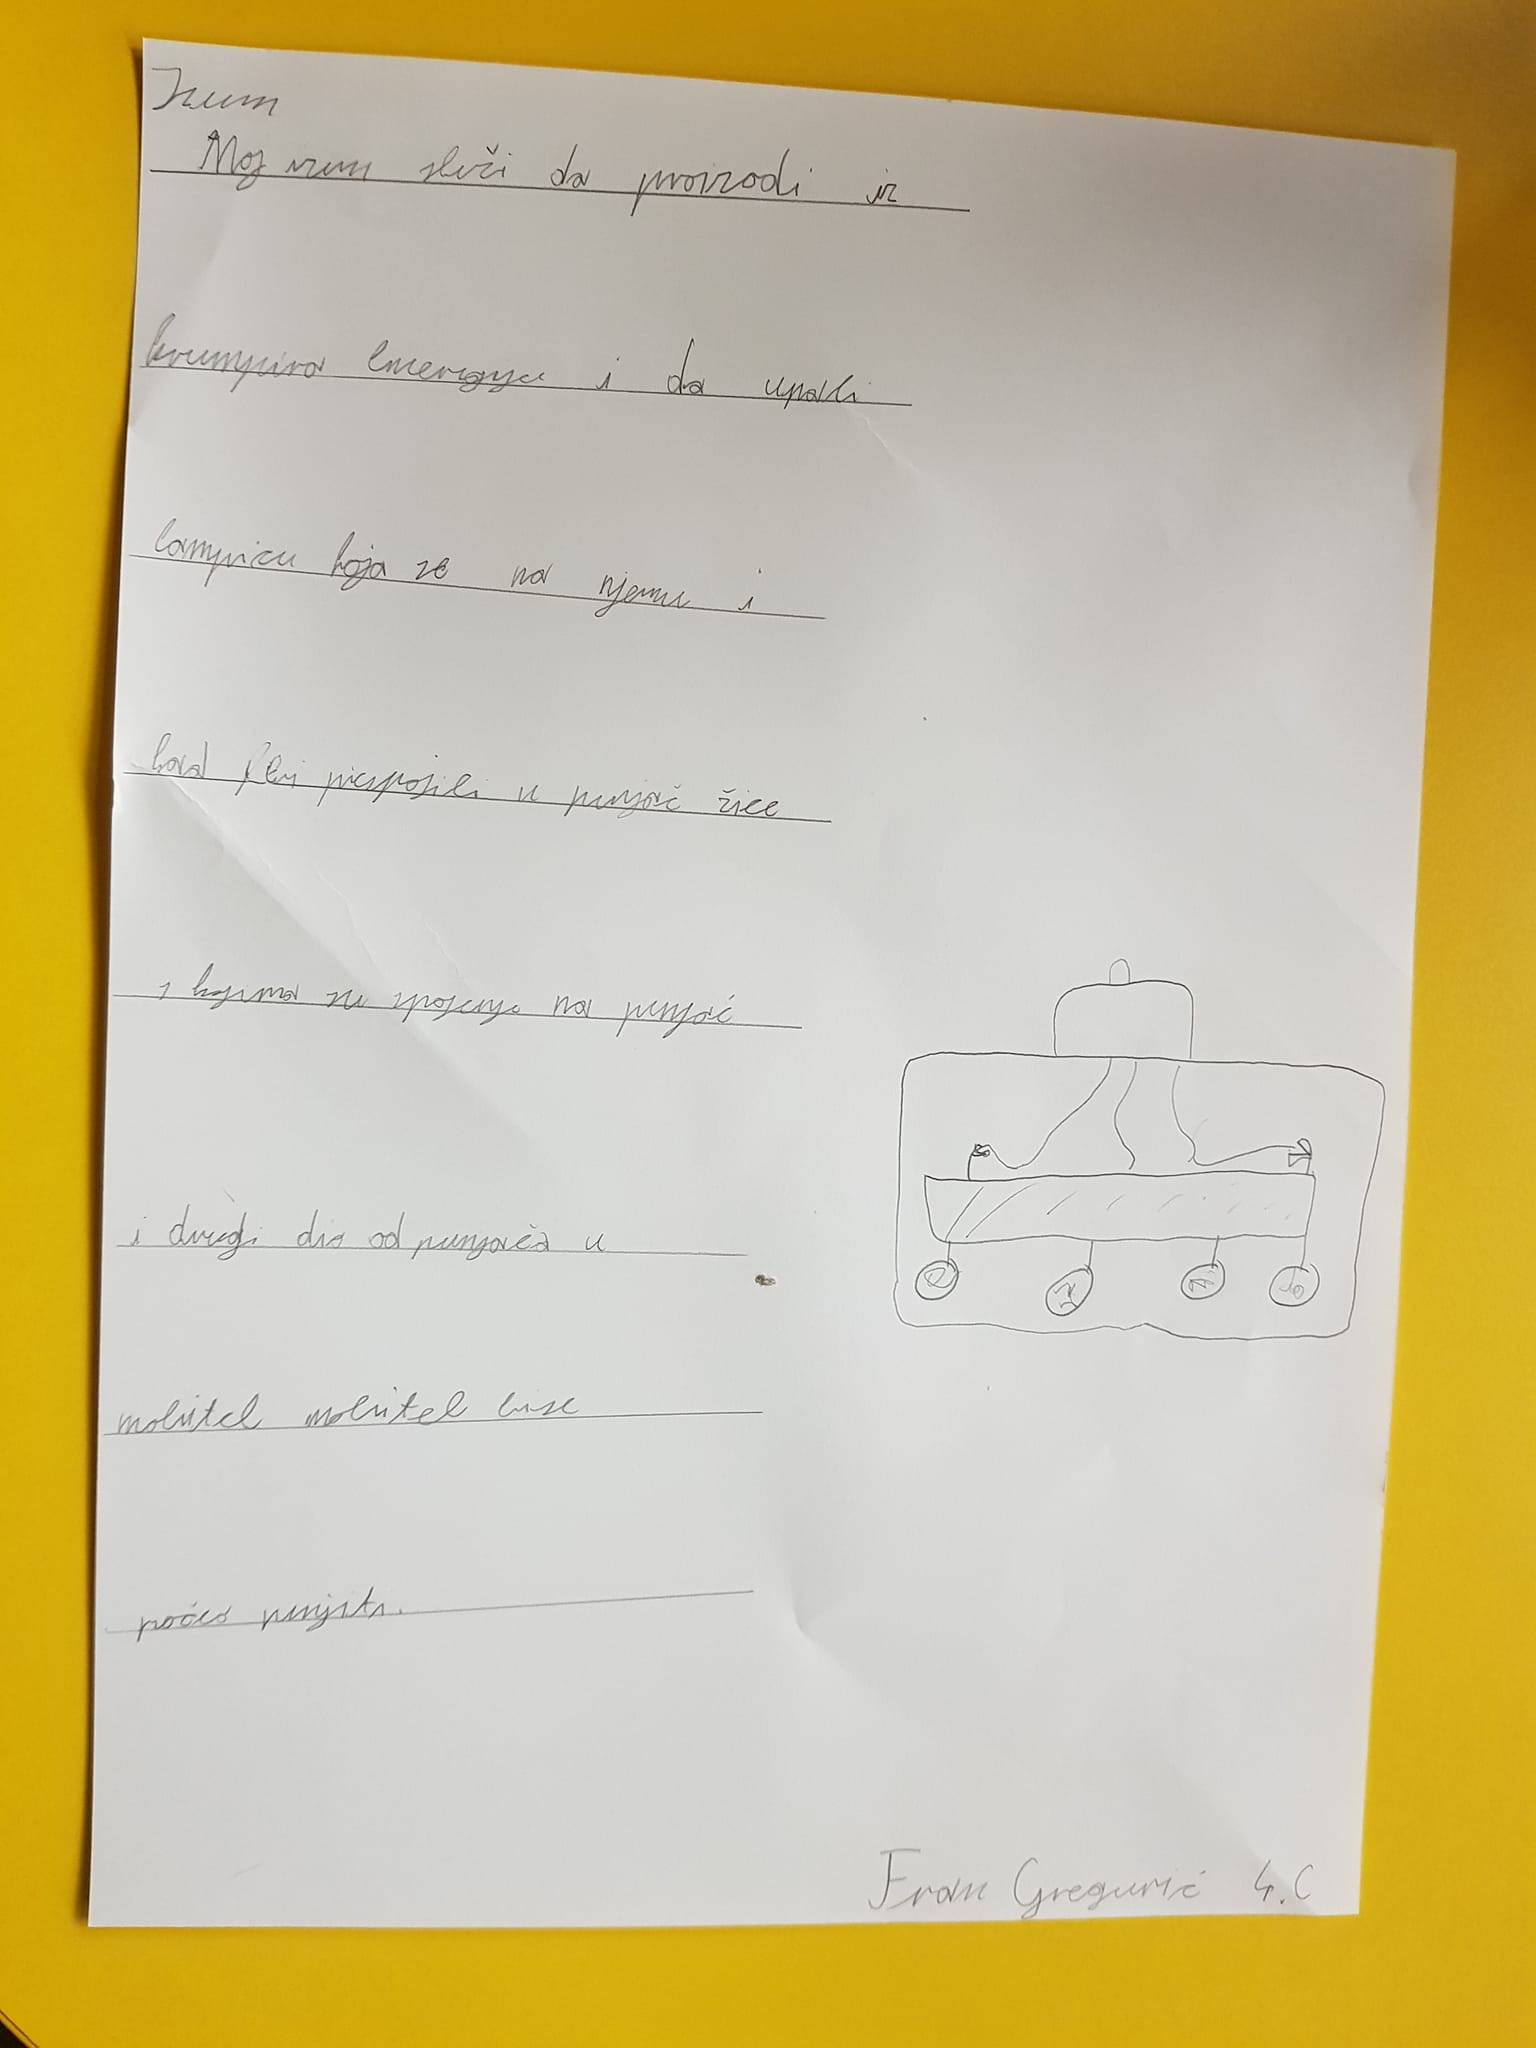 Izum
Moj izum služi da proizvodi iz
krumpira energiju i da upali
lampicu koja se na njemu i
kad bi prispojili u punjač žice
s kojima su spojene na punjač
i drugi dio od punjača u
mobitel mobitel bi se
počeo punjati.
Fran Gregurić 4.C